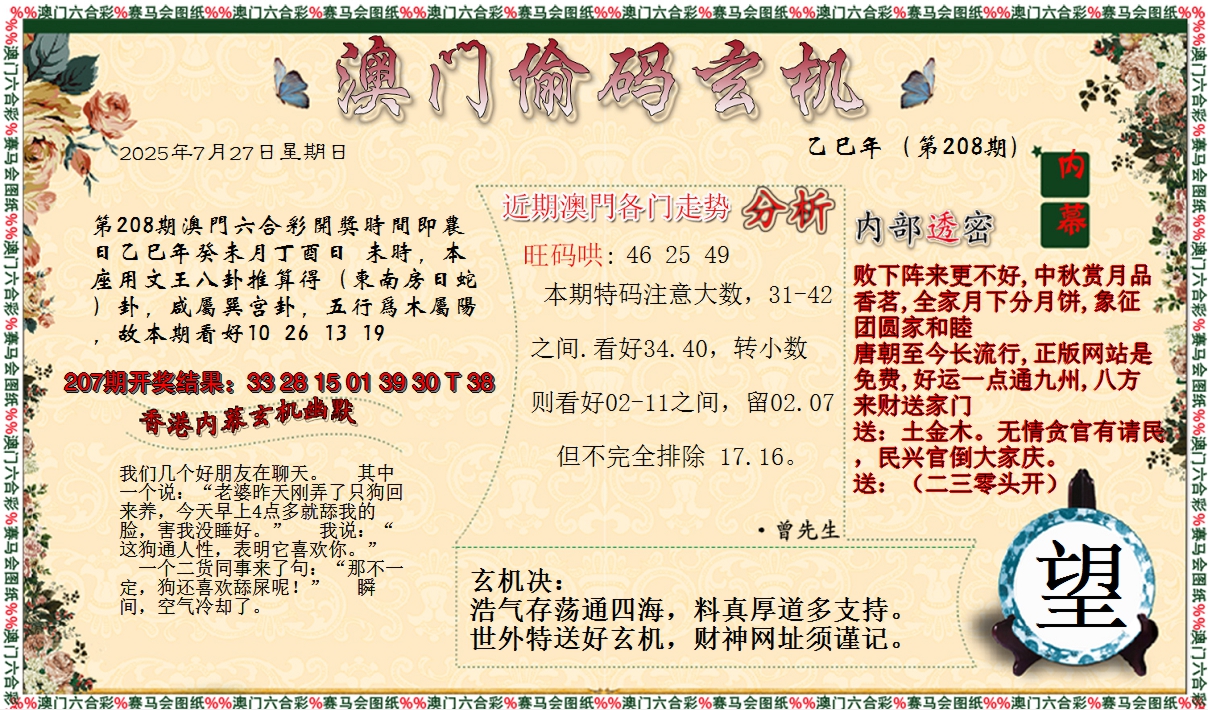 %%澳门六合彩%赛马会图纸%%澳门六合彩%赛马会图纸%%澳门六合彩%赛马会图纸%%澳门六合彩%赛马会图纸%%澳门六合彩%赛马会图纸%%澳门六合彩%赛马会图纸%%
澳门偷码玄机
2025年7月27日星期日
乙巳年（第208期）
第208期澳門六合彩開獎時間即農
日乙巳年癸未月丁酉日 未時，本
座用文王八卦推算得（東南房日蛇
）卦，咸屬巽宫卦，五行爲木屬陽
，故本期看好10 26 13 19
207期开奖结果：33 28 15 01 39 30 T 38
香港内幕玄机幽默
我们几个好朋友在聊天。 其中
一个说：“老婆昨天刚弄了只狗回
来养，今天早上4点多就舔我的
脸，害我没睡好。” 我说：“
这狗通人性，表明它喜欢你。”
一个二货同事来了句：“那不一
定，狗还喜欢舔屎呢！” 瞬
间，空气冷却了。
近期澳門各门走势 分析
旺码哄: 46 25 49
本期特码注意大数，31-42
之间.看好34.40，转小数
则看好02-11之间，留02.07
但不完全排除 17.16。
·曾先生
玄机决：
浩气存荡通四海，料真厚道多支持。
世外特送好玄机，财神网址须谨记。
内幕
内部透密
败下阵来更不好,中秋赏月品
香茗,全家月下分月饼,象征
团圆家和睦
唐朝至今长流行,正版网站是
免费,好运一点通九州,八方
来财送家门
送：土金木。无情贪官有请民
，民兴官倒大家庆。
送：（二三零头开）
望
%%澳门六合彩%赛马会图纸%%澳门六合彩%赛马会图纸%%澳门六合彩%赛马会图纸%%澳门六合彩%赛马会图纸%%澳门六合彩%赛马会图纸%%澳门六合彩%赛马会图纸%%